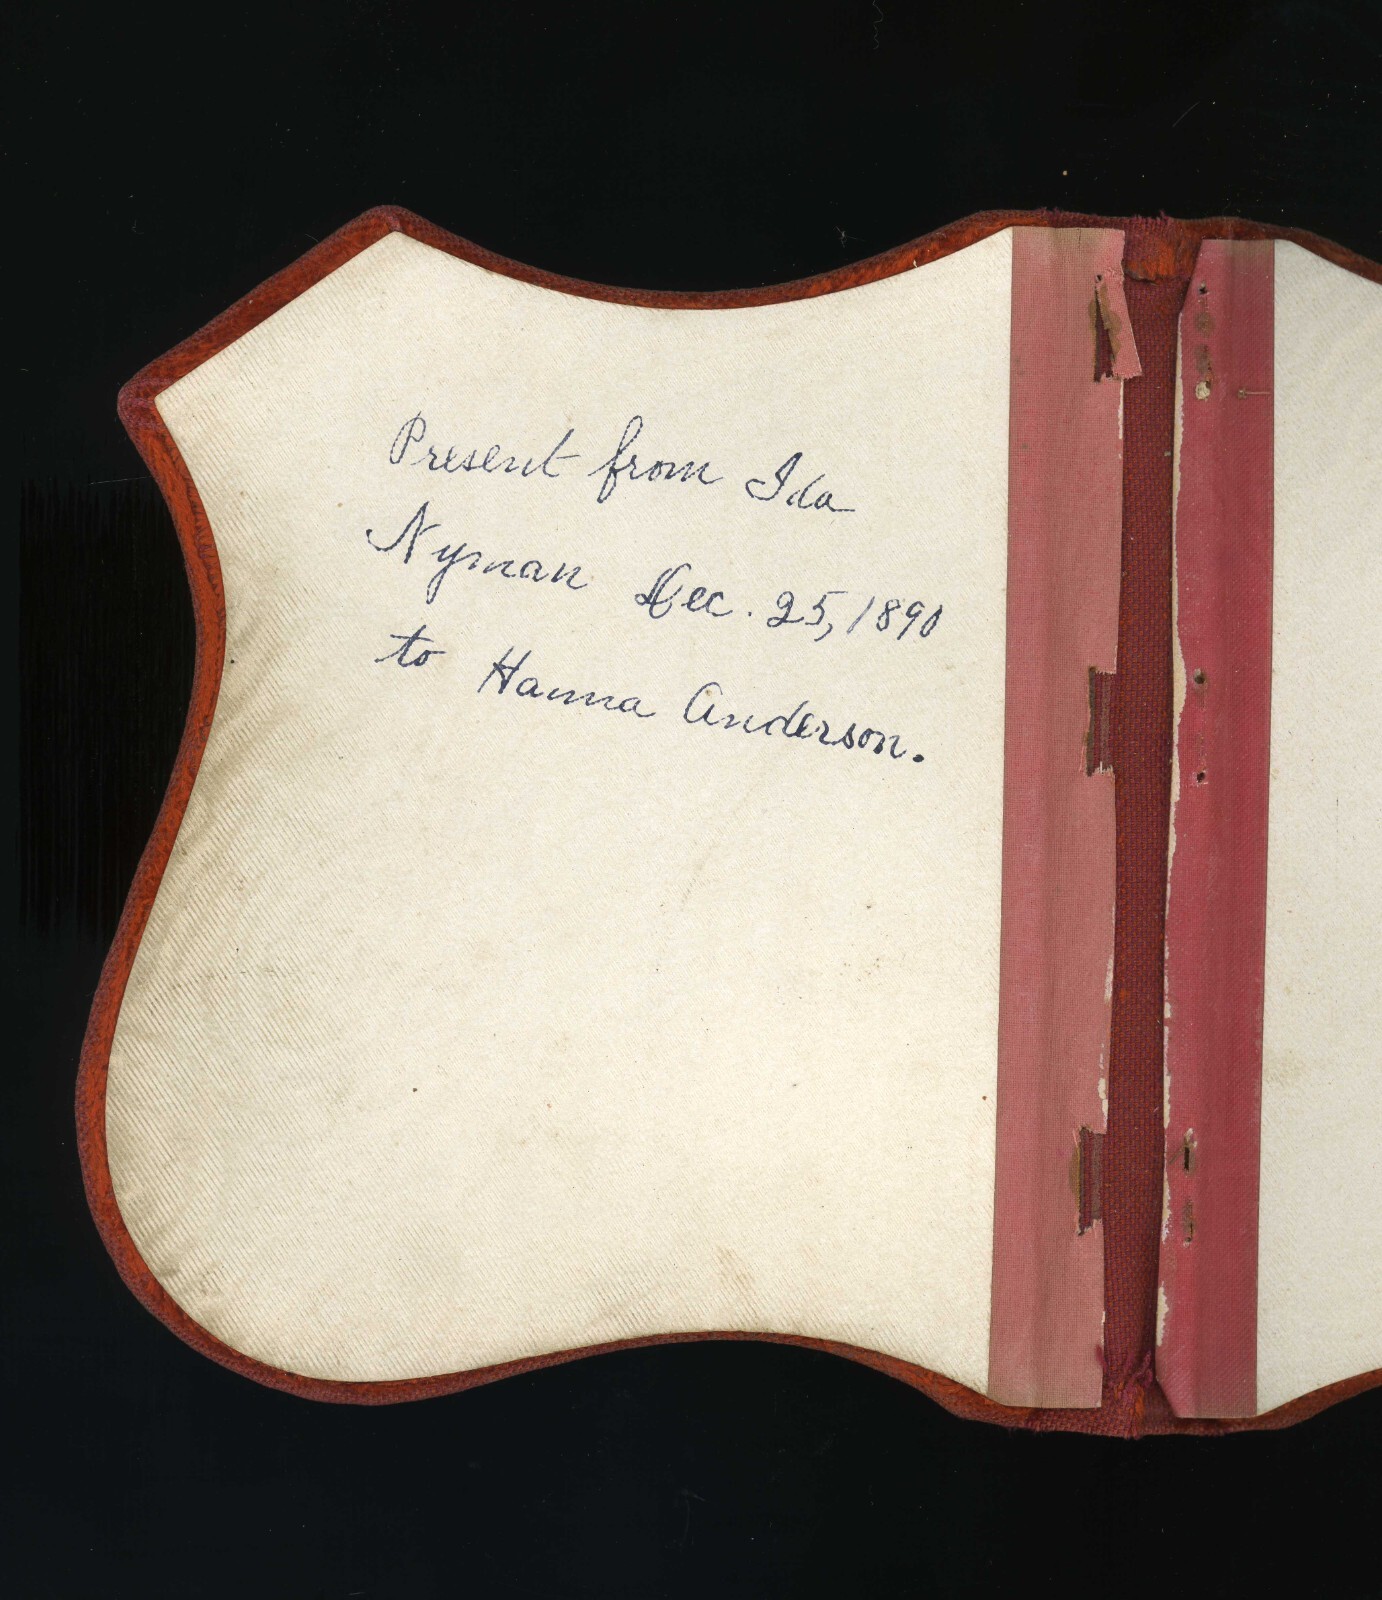 Present from Ida
Nyman Dec. 25, 1890
to Hanna Anderson.